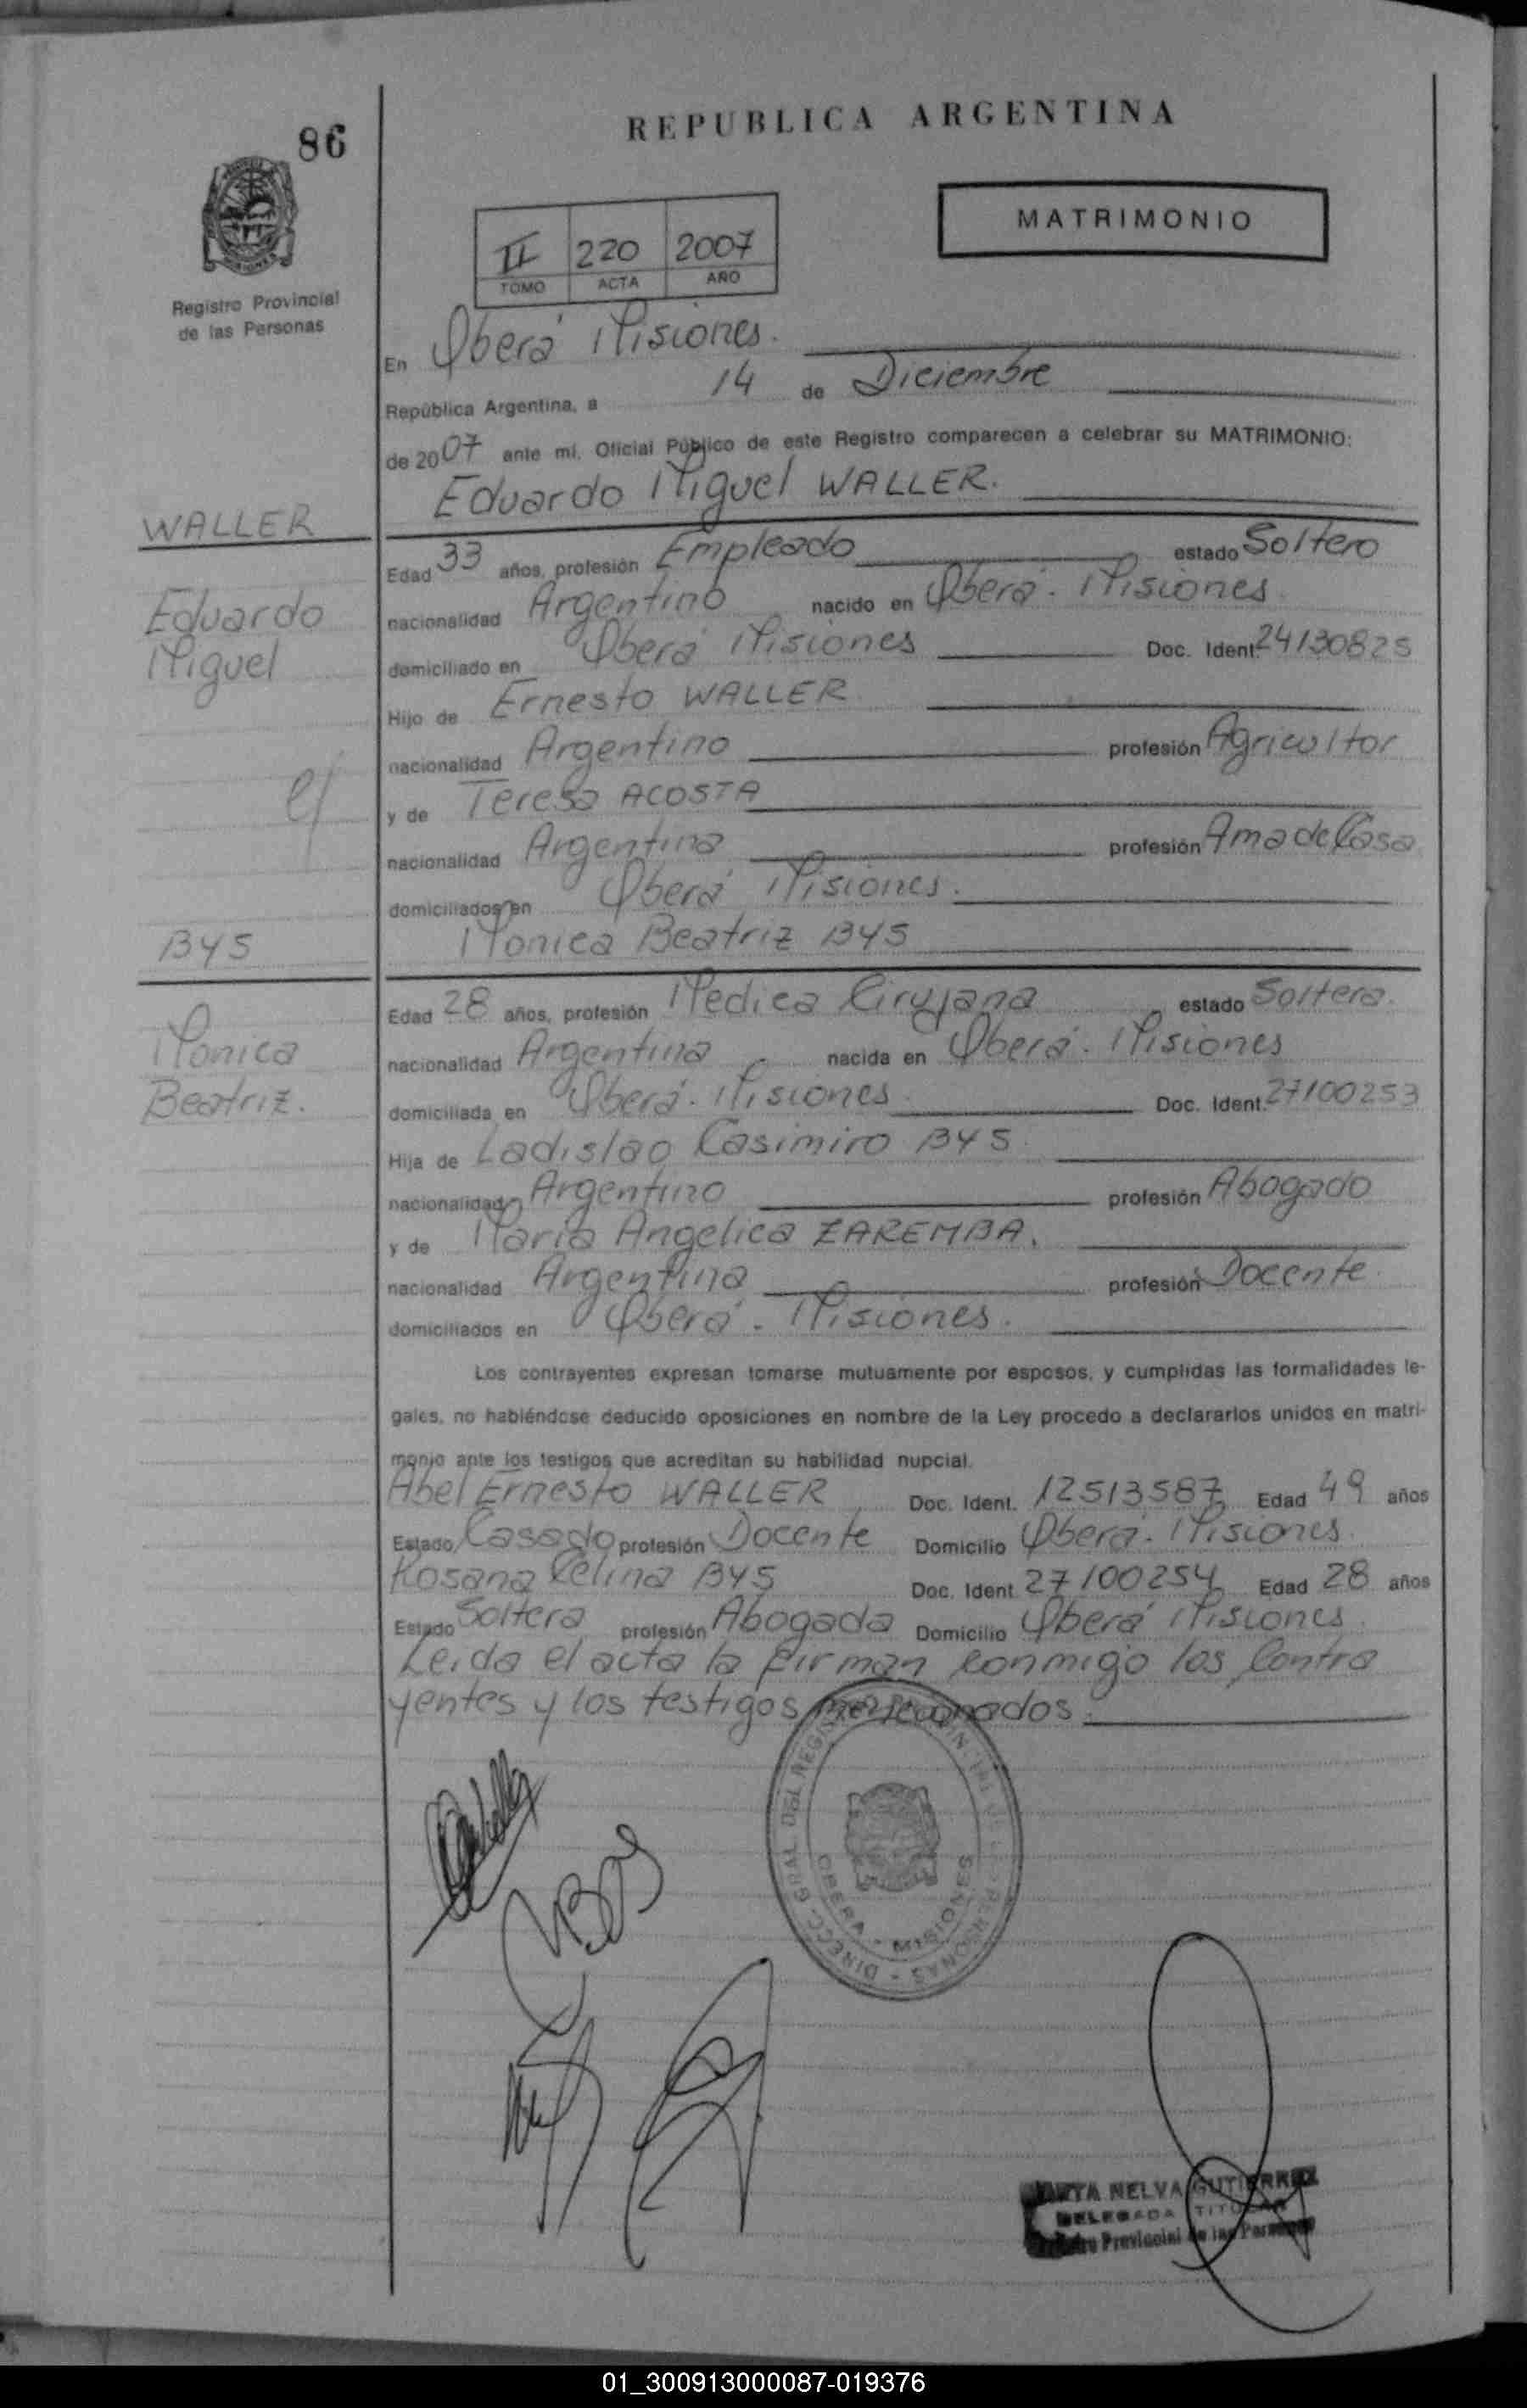 86
REPUBLICA ARGENTINA
MATRIMONIO
II 220 2007
TOMO ACTA AÑO
Registro Provincial
de las Personas
En Oberá Misiones.
República Argentina, a 14 de Diciembre
de 2007 ante mi, Oficial Público de este Registro comparecen a celebrar su MATRIMONIO:
Eduardo Miguel WALLER.
WALLER
Edad 33 años, profesión Empleado estado Soltero
Eduardo
nacionalidad Argentino nacido en Oberá - Misiones
Miguel
domiciliado en Oberá Misiones Doc. Ident. 24130825
Hijo de Ernesto WALLER
nacionalidad Argentino profesión Agricultor
c/
y de Teresa ACOSTA
nacionalidad Argentina profesión Ama de Casa
domiciliados en Oberá Misiones.
BYS
Monica Beatriz BYS
Edad 28 años, profesión Medica Cirujana estado Soltera.
Monica
nacionalidad Argentina nacida en Oberá - Misiones
Beatriz.
domiciliada en Oberá - Misiones Doc. Ident. 27100253
Hija de Ladislao Casimiro BYS
nacionalidad Argentino profesión Abogado
y de Maria Angelica ZAREMBA.
nacionalidad Argentina profesión Docente
domiciliados en Oberá - Misiones.
Los contrayentes expresan tomarse mutuamente por esposos, y cumplidas las formalidades le-
gales, no habiéndose deducido oposiciones en nombre de la Ley procedo a declararlos unidos en matri-
monio ante los testigos que acreditan su habilidad nupcial.
Abel Ernesto WALLER Doc. Ident. 12513587 Edad 49 años
Estado Casado profesión Docente Domicilio Oberá - Misiones
Rosana Celina BYS Doc. Ident. 27100254 Edad 28 años
Estado Soltera profesión Abogada Domicilio Oberá Misiones
Leida el acta la firman conmigo los Contra
yentes y los testigos mencionados.
DIRECC. GRAL. DEL REGISTRO PROVINCIAL DE LAS PERSONAS
OBERA - MISIONES
MARTA NELVA GUTIERREZ
DELEGADA TITULAR
Registro Provincial de las Personas
01_300913000087-019376